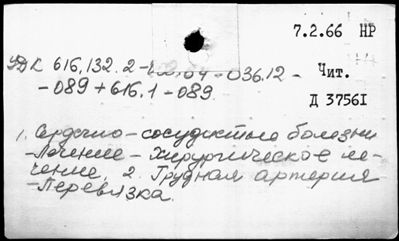 7.2.66 НР
УДК 616.132.2-
036.12 -
Чит.
-089+616.1-089.
Д 37561
1. Сердечно-сосудистые болезни
-Лечение-Хирургическое ле-
чение. 2. Грудная артерия
-Перевязка.